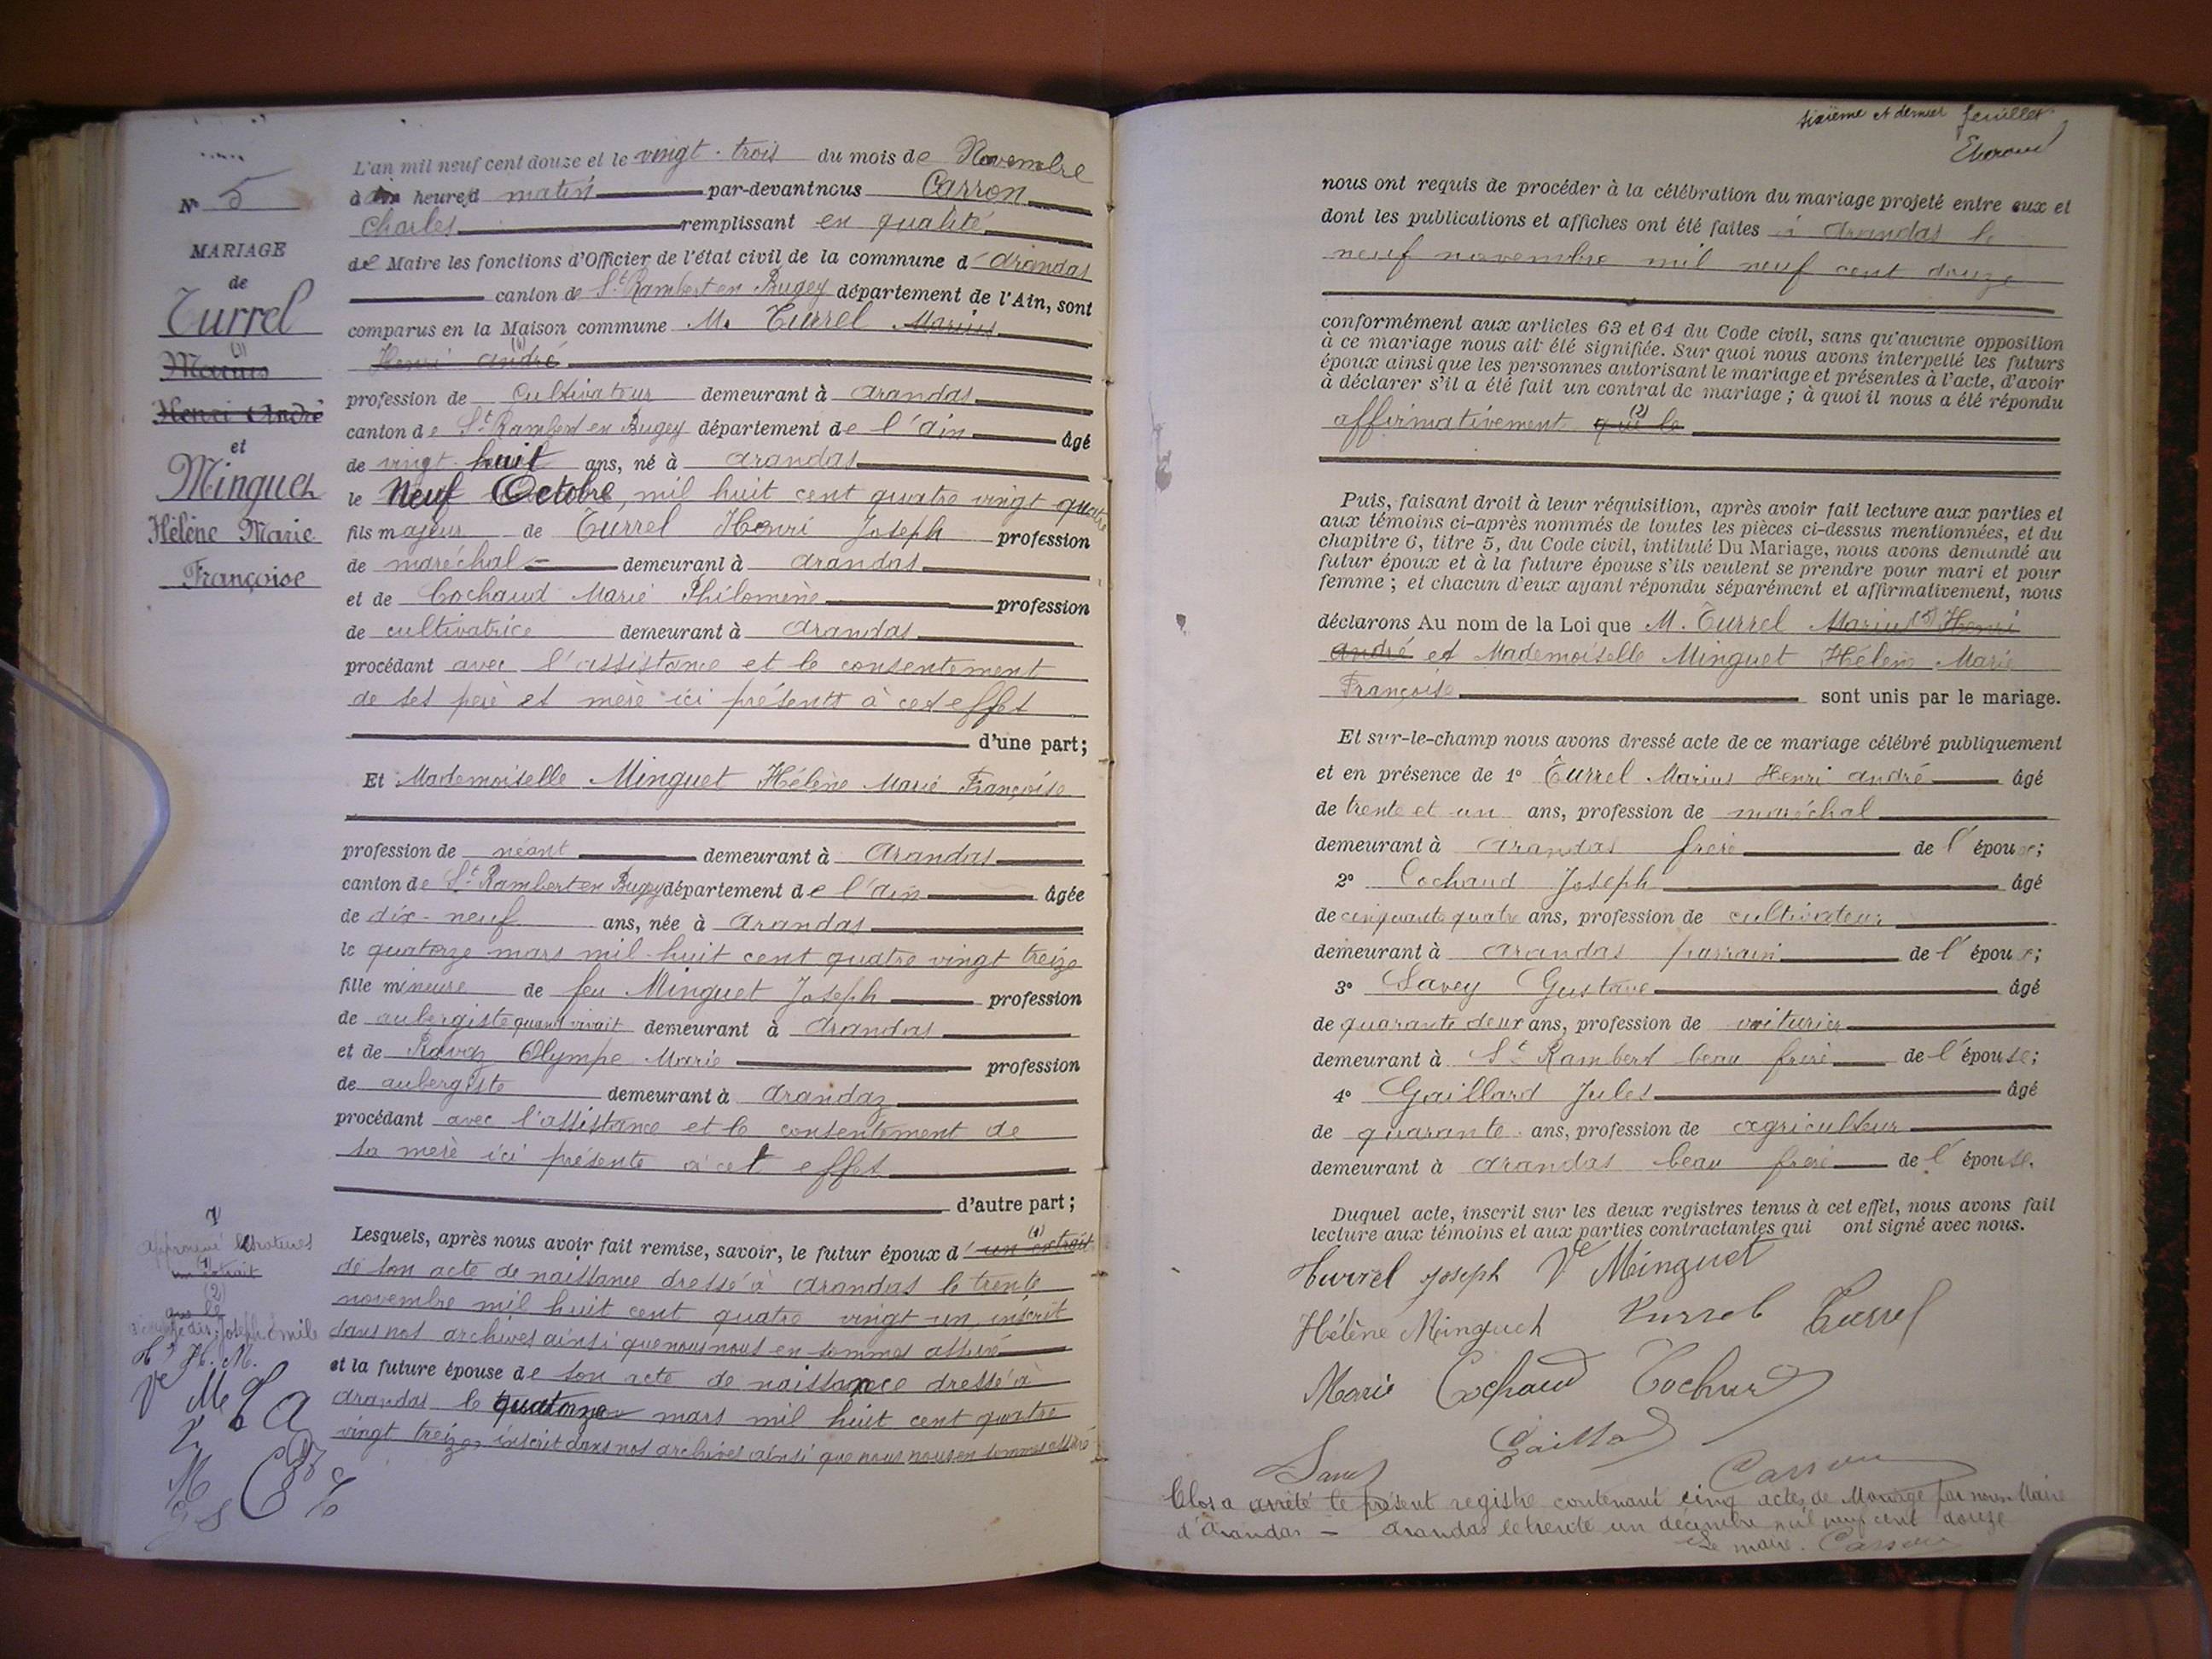 N° 5
MARIAGE
de
Turrel
(1)
Marius
Henri André
et
Minguet
Hélène Marie
Françoise
L'an mil neuf cent douze et le vingt-trois du mois de Novembre
à heures matin par-devant nous Carron
Charles remplissant en qualité
de Maire les fonctions d'Officier de l'état civil de la commune d'Arandas
canton de St Rambert en Bugey département de l'Ain, sont
comparus en la Maison commune M. Turrel Marius
(1)
Henri André
profession de Cultivateur demeurant à Arandas
canton de St Rambert en Bugey département de l'Ain âgé
de vingt-huit ans, né à Arandas
le Neuf Octobre, mil huit cent quatre vingt quatre
fils majeur de Turrel Henri Joseph profession
de maréchal demeurant à Arandas
et de Cochaud Marie Philomène profession
de cultivatrice demeurant à Arandas
procédant avec l'assistance et le consentement
de ses père et mère ici présents à cet effet
d'une part;
Et Mademoiselle Minguet Hélène Marie Françoise
profession de néant demeurant à Arandas
canton de St Rambert en Bugey département de l'Ain âgée
de dix-neuf ans, née à Arandas
le quatorze mars mil huit cent quatre vingt treize
fille mineure de feu Minguet Joseph profession
de aubergiste quand vivait demeurant à Arandas
et de Ravaz Olympe Marie profession
de aubergiste demeurant à Arandaz
procédant avec l'assistance et le consentement de
sa mère ici présente à cet effet
d'autre part;
(1)
Lesquels, après nous avoir fait remise, savoir, le futur époux d'un extrait
de son acte de naissance dressé à Arandas le trente
novembre mil huit cent quatre vingt un, inscrit
dans nos archives ainsi que nous nous en sommes assuré
et la future épouse de son acte de naissance dressé à
Arandas le quatorze mars mil huit cent quatre
vingt treize, inscrit dans nos archives ainsi que nous nous en sommes assuré
Approuvé
(1)
un extrait
(2)
que le
Joseph Emile
H. M.
Ve M
sixième et dernier feuillet
nous ont requis de procéder à la célébration du mariage projeté entre eux et
dont les publications et affiches ont été faites à Arandas le
neuf novembre mil neuf cent douze
conformément aux articles 63 et 64 du Code civil, sans qu'aucune opposition
à ce mariage nous ait été signifiée. Sur quoi nous avons interpellé les futurs
époux ainsi que les personnes autorisant le mariage et présentes à l'acte, d'avoir
à déclarer s'il a été fait un contrat de mariage; à quoi il nous a été répondu
(2)
affirmativement que le
Puis, faisant droit à leur réquisition, après avoir fait lecture aux parties et
aux témoins ci-après nommés de toutes les pièces ci-dessus mentionnées, et du
chapitre 6, titre 5, du Code civil, intitulé Du Mariage, nous avons demandé au
futur époux et à la future épouse s'ils veulent se prendre pour mari et pour
femme; et chacun d'eux ayant répondu séparément et affirmativement, nous
déclarons Au nom de la Loi que M. Turrel Marius Henri
André et Mademoiselle Minguet Hélène Marie
Françoise sont unis par le mariage.
Et sur-le-champ nous avons dressé acte de ce mariage célébré publiquement
et en présence de 1° Turrel Marius Henri André âgé
de trente et un ans, profession de maréchal
demeurant à Arandas frère de l'époux;
2° Cochaud Joseph âgé
de cinquante quatre ans, profession de cultivateur
demeurant à Arandas parrain de l'époux;
3° Savey Gustave âgé
de quarante deux ans, profession de voiturier
demeurant à St Rambert beau frère de l'épouse;
4° Gaillard Jules âgé
de quarante ans, profession de agriculteur
demeurant à Arandas beau frère de l'épouse.
Duquel acte, inscrit sur les deux registres tenus à cet effet, nous avons fait
lecture aux témoins et aux parties contractantes qui ont signé avec nous.
Turrel Joseph Ve Minguet
Hélène Minguet Turrel Turrel
Marie Cochaud Cochaud
Gaillard
Savey Carron
Clos a arrêté le présent registre contenant cinq actes de Mariage par nous Maire
d'Arandas – Arandas le trente un décembre mil neuf cent douze
Le maire. Carron